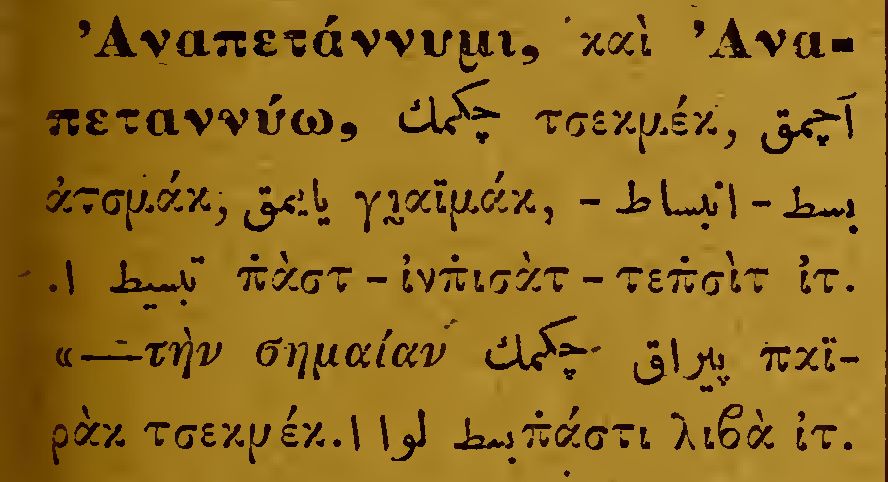 Ἀναπετάννυμι, καὶ Ἀνα-
πεταννύω, چكمك τσεκμέκ, آچمق
ἀτσμάκ, يايمق γιαϊμάκ, - بسط - انبساط
تبسيط ا. π̇ὰστ - ἰνπ̇ισὰτ - τεπ̇σὶτ ἰτ.
«—τὴν σημαίαν چكمك پيراق παϊ-
ρὰκ τσεκμέκ. بسط لوا ا π̇άστι λιϐὰ ἰτ.